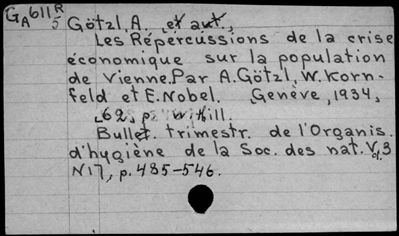 GA 611 R/5
Götzl, A. et aut.,
Les Répercussions de la crise
économique sur la population
de Vienne. Par A. Götzl, W. Korn-
feld et E. Nobel. Genève, 1934,
62, p. ill.
Bullet. trimestr. de l'Organis.
d'hygiène de la Soc. des nat. V.3
N17, p. 485-546.